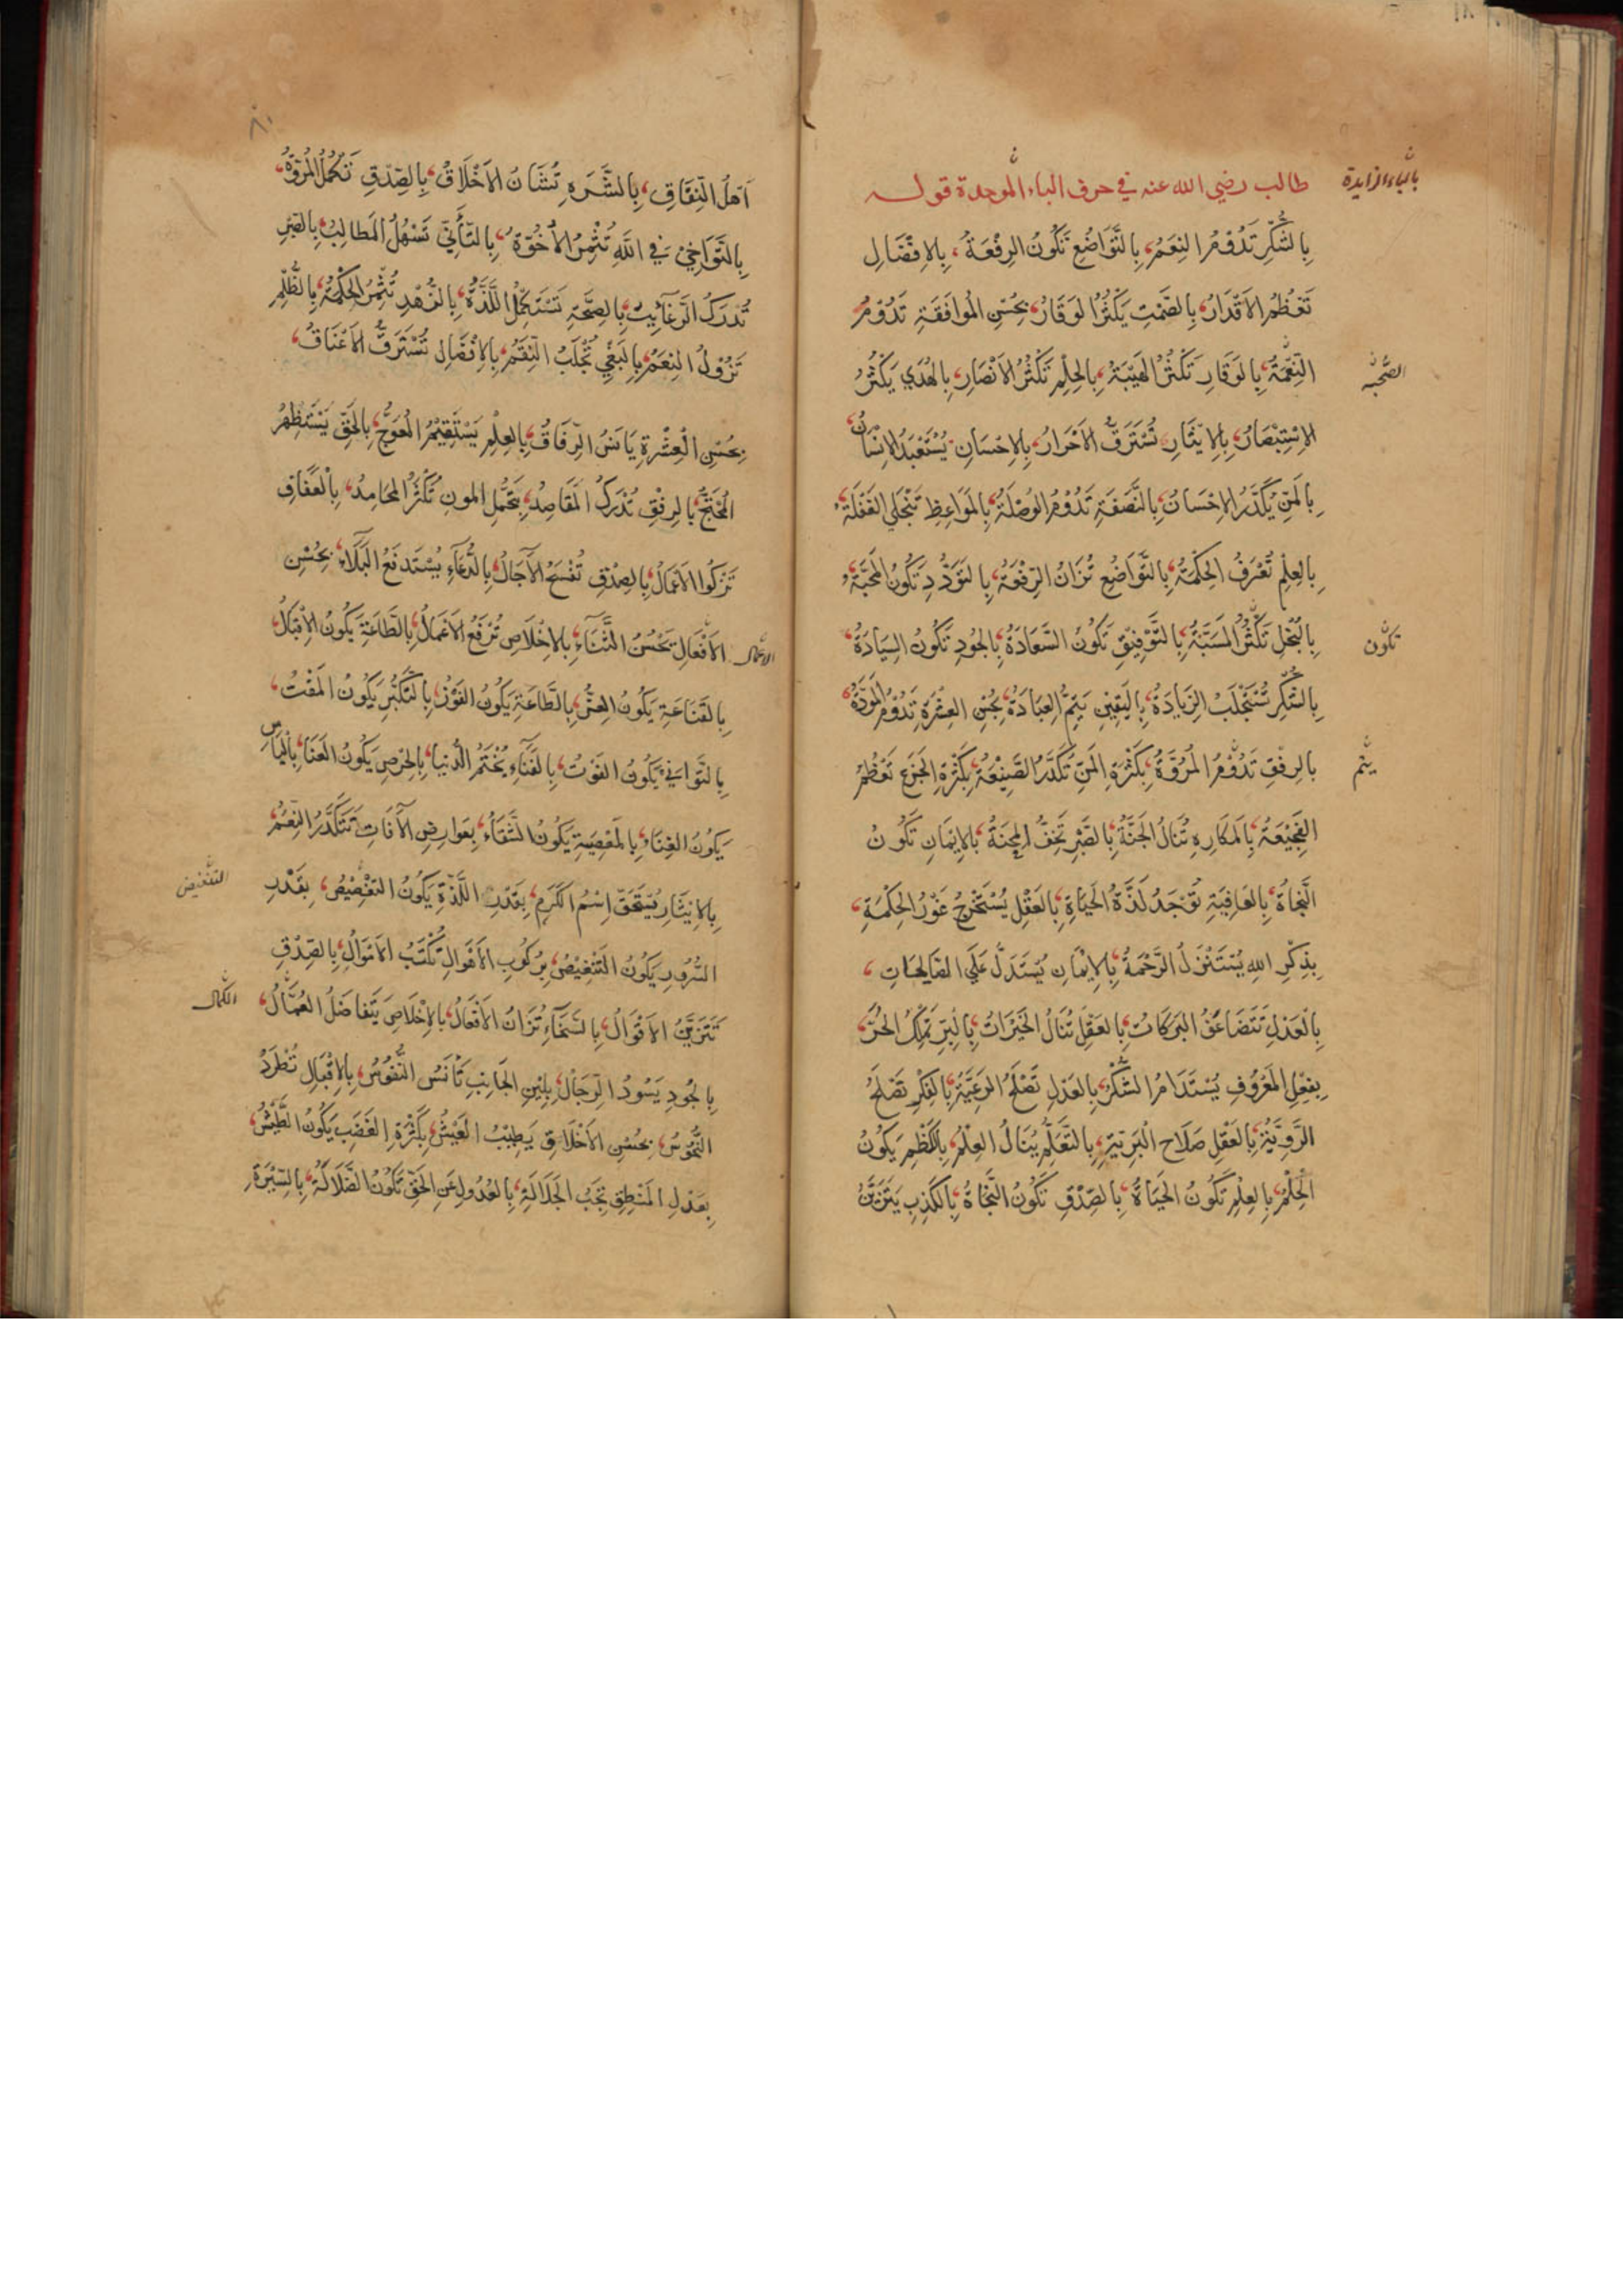 طالب رضي الله عنه في حرف الباء الموحدة قوله
بالباء الزايدة
بِالشُّكْرِ تَدُوْمُ النِعَمُ، بِالتَّوَاضُعِ تَكُونُ الرِفْعَةُ، بِالاِفْضَالِ
تَعْظُمُ الاَقْدَارُ، بِالصَّمْتِ يَكْثُرُ الوَقَارُ، بِحُسْنِ المُوَافَقَةِ تَدُوْمُ
النِّعْمَةُ، بِالوَقَارِ تَكْثُرُ الهَيْبَةُ، بِالحِلْمِ تَكْثُرُ الاَنْصَارُ، بِالهُدَي يَكْثُرُ
الصُّحْبَة
الاِسْتِبْصَارُ، بِالاِيْثَارِ تُسْتَرَقُّ الاَحْرَارُ، بِالاِحْسَانِ يُسْتَعْبَدُ الاِنْسَانُ،
بِالمَنِّ يُكَدَّرُ الاِحْسَانُ، بِالنَّصَفَةِ تَدُوْمُ الوُصْلَةُ، بِالمَوَاعِظِ تَنْجَلِي الغَفْلَةُ،
بِالعِلْمِ تُعْرَفُ الحِكْمَةُ، بِالتَّوَاضُعِ تُزَانُ الرِّفْعَةُ، بِالتَوَدُّدِ تَكُونُ المَحَبَّةُ،
بِالبُخْلِ تَكْثُرُ المَسَبَّةُ، بِالتَّوْفِيْقِ تَكُوْنُ السَّعَادَةُ، بِالجُودِ تَكُونُ السِّيَادَةُ،
تكون
بِالشُّكْرِ تُسْتَجْلَبُ الزِّيَادَةُ، بِاليَقِيْنِ يَتِمُّ العِبَادَةُ، بِحُسْنِ العِشْرَةِ تَدُوْمُ المَوَدَّةُ،
بالرِفْقِ تَدُوْمُ المُرُوَّةُ، بِكَثْرَةِ المَنِّ تُكَدَّرُ الصَّنِيْعَةُ، بِكَثْرَةِ الجَزَعِ تَعْظُمُ
يتم
الفَجِيْعَةُ، بِالمَكَارِهِ تُنَالُ الجَنَّةُ، بِالصَّبْرِ تَخِفُّ المِحْنَةُ، بِالاِيْمَانِ تَكُونُ
النَّجَاةُ، بِالعَافِيَةِ تُوْجَدُ لَذَّةُ الحَيَاةِ، بِالعَقْلِ يُسْتَخْرَجُ غَوْرُ الحِكْمَةِ،
بِذِكْرِ اللهِ يُسْتَنْزَلُ الرَّحْمَةُ، بِالاِيْمَانِ يُسْتَدَلُّ عَلَي الصَّالِحَاتِ،
بِالْعَدْلِ تَتَضَاعَفُ البَرَكَاتُ، بِالعَقْلِ تُنَالُ الخَيْرَاتُ، بِالبِرِّ يُمْلَكُ الحُرُّ،
بِفِعْلِ المَعْرُوفِ يُسْتَدَامُ الشُّكْرُ، بِالعَدْلِ تَصْلَحُ الرَعِيَّةُ، بِالفِكْرِ تَصْلَحُ
الرَّوِيَّةُ، بِالعَقْلِ صَلَاحُ البَرِيَّةِ، بِالتَّعَلُّمِ يُنَالُ العِلْمُ، بِالْكَظْمِ يَكُونُ
الْحِلْمُ، بِالعِلْمِ تَكُونُ الحَيَاةُ، بِالصِّدْقِ تَكُونُ النَّجَاةُ، بِالكَذِبِ يَتَزَيَّنُ
٨٠
اَهْلُ النِّفَاقِ، بِالشَّرَهِ تُشَانُ الاَخْلَاقُ، بِالصِّدْقِ تَكْمُلُ المُرُوَّةُ،
بِالتَّوَاخِيْ فِي اللهِ تُثْمِرُ الاُخُوَّةُ، بِالتَّأَنِّي تَسْهُلُ المَطَالِبُ، بِالصَّبْرِ
تُدْرَكُ الرَغَآئِبُ، بِالصِحَّةِ تَسْتَكْمِلُ اللَّذَّةُ، بِالزُّهْدِ تُثْمِرُ الحِكْمَةُ، بِالظُّلْمِ
تَزُوْلُ النِعَمُ، بِالبَغْيِ تُجْلَبُ النِّقَمُ، بِالاِفْضَالِ تُسْتَرَقُّ الاَعْنَاقُ،
بِحُسْنِ الْعِشْرَةِ يَانَسُ الرِّفَاقُ، بِالعِلْمِ يَسْتَقِيْمُ الْمُعْوَجُّ، بِالحَقِّ يَسْتَظْهِرُ
المُحْتَجُّ، بِالرِفْقِ تُدْرَكُ المَقَاصِدُ، بِتَحَمُّلِ المُونِ تَكْثُرُ المَحَامِدُ، بِالْعَفَافِ
تَزْكُوا الاَعْمَالُ، بِالصِدْقِ تُفْسَحُ الآجَالُ، بِالدُّعَآءِ يُسْتَدْفَعُ الْبَلَآءُ، بِحُسْنِ
الاَفْعَالِ يَحْسُنُ الثَّنَآءُ، بِالاِخْلَاصِ تُرْفَعُ الاَعْمَالُ، بِالطَّاعَةِ يَكُونُ الاِقْبَالُ
الاعمال
بِالقَنَاعَةِ يَكُونُ العِزُّ، بِالطَّاعَةِ يَكُونُ الفَوْزُ، بِالتَّكَبُّرِ يَكُونُ المَقْتُ،
بِالتَّوَانِي يَكُونُ الفَوْتُ، بِالفَنَآءِ يُخْتَمُ الدُّنيا، بِالحِرْصِ يَكُونُ العَنَا، بِاليَاسِ
يَكُونُ الغِنَاءُ، بِالمَعْصِيَةِ يَكُونُ الشَّقَاءُ، بِعَوارِضِ الآفَاتِ تَتَكَدَّرُ النِعَمُ،
بِالاِيثَارِ يُسْتَحَقُّ اِسْمُ الكَرَمِ، بِقَدْرِ اللَّذَّةِ يَكُونُ التَغْصِيْصُ، بِقَدْرِ
السُّرُورِ يَكُونُ التَّنْغِيْصُ، بِرُكُوْبِ الاَهْوَالِ تُكْتَسَبُ الاَمْوَالُ، بِالصِّدْقِ
تَتَزَيَّنُ الاَقْوَالُ، بِالسَّخَآءِ تُزَانُ الاَفْعَالُ، بِالاِخْلَاصِ يَتَفَاضَلُ العُمَّالُ،
بِالجُودِ يَسُودُ الرِّجَالُ، بِلِيْنِ الجَانِبِ تَأْنَسُ النُّفُوْسُ، بِالاِقْبَالِ تُطْرَدُ
النُّحُوْسُ، بِحُسْنِ الاَخْلَاقِ يَطِيْبُ العَيْشُ، بِكَثْرَةِ الغَضَبِ يَكُونُ الطَّيْشُ،
بِعَدْلِ المَنْطِقِ تَجِبُ الجَلَالَةُ، بِالعُدُولِ عَنِ الحَقِّ تَكُونُ الضَّلَالَةُ، بِالسِّيْرَةِ